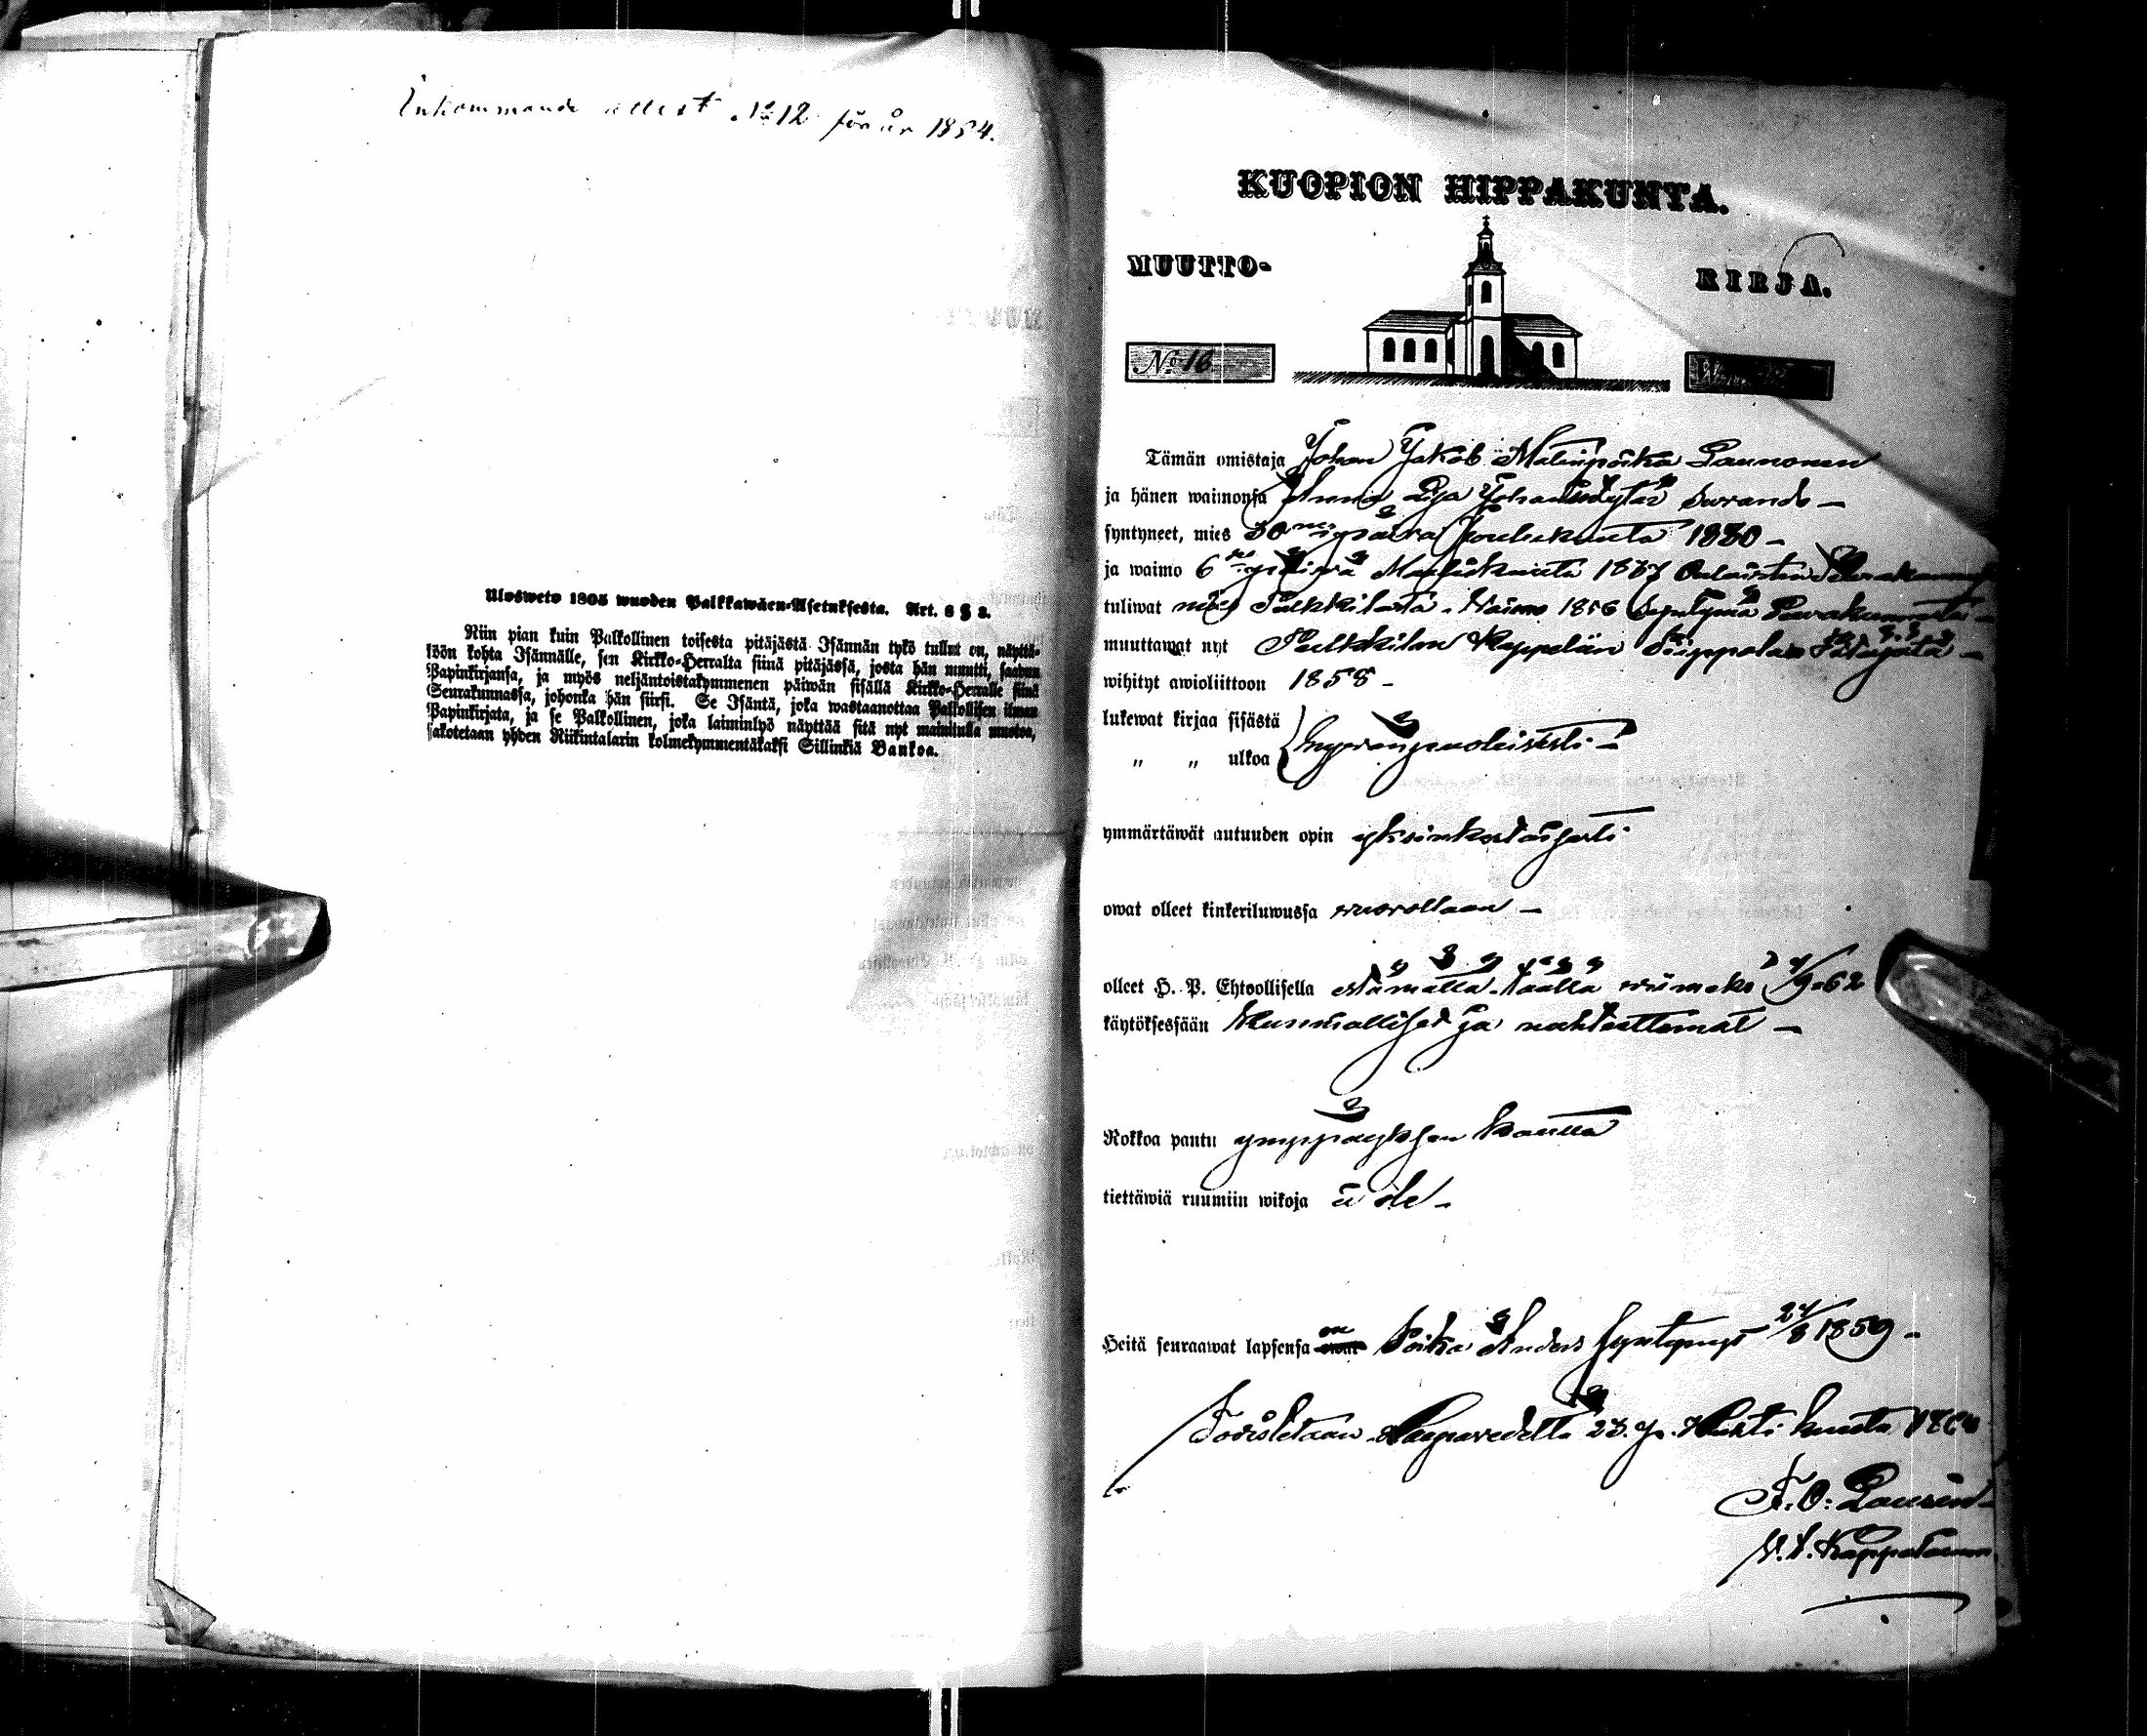 Inkommande attest No 12 för år 1854.
Ulosweto 1805 wuoden Palkkawäen-Asetuksesta. Art. 8 § 3.
Niin pian kuin Palkollinen toisesta pitäjästä Isännän tykö tullut on, näyttä-
köön kohta Isännälle, sen Kirkko-Herralta siinä pitäjässä, josta hän muutti, saadun
Papinkirjansa, ja myös neljäntoistakymmenen päiwän sisällä Kirkko-Herralle siinä
Seurakunnassa, johonka hän siirsi. Se Isäntä, joka wastaanottaa Palkollisen ilman
Papinkirjata, ja se Palkollinen, joka laiminlyö näyttää sitä nyt mainitulla muotoa,
sakotetaan yhden Riikintalarin kolmekymmentäkaksi Sillinkiä Bankoa.
KUOPION HIPPAKUNTA.
MUUTTO- KIRJA.
No 16
Tämän omistaja Johan Jakob Matinpoika
ja hänen waimonsa Anna Johanintytär
syntyneet, mies 30 päivä Joulukuuta 1830 -
ja waimo 6 päivä Maaliskuuta 1837
tuliwat mies Pulkkilasta. Waimo 1856
muuttawat nyt Pulkkilan Kappeliin Siippolan Pitäjästä -
wihityt awioliittoon 1858 -
lukewat kirjaa sisästä
" " ulkoa
ymmärtäwät autuuden opin yksinkertaisesti
owat olleet kinkeriluwussa vuorollaan -
olleet H. P. Ehtoollisella estämättä täällä viimeksi
käytöksessään kunnialliset ja nuhteettomat -
Rokkoa pantu ymppäyksen kautta
tiettäwiä ruumiin wikoja ei ole -
Heitä seuraawat lapsensa on Poika Anders syntynyt 24/8 1859 -
Todistetaan Haapavedellä 23. p. Huhti kuuta
V. t. Kappalainen